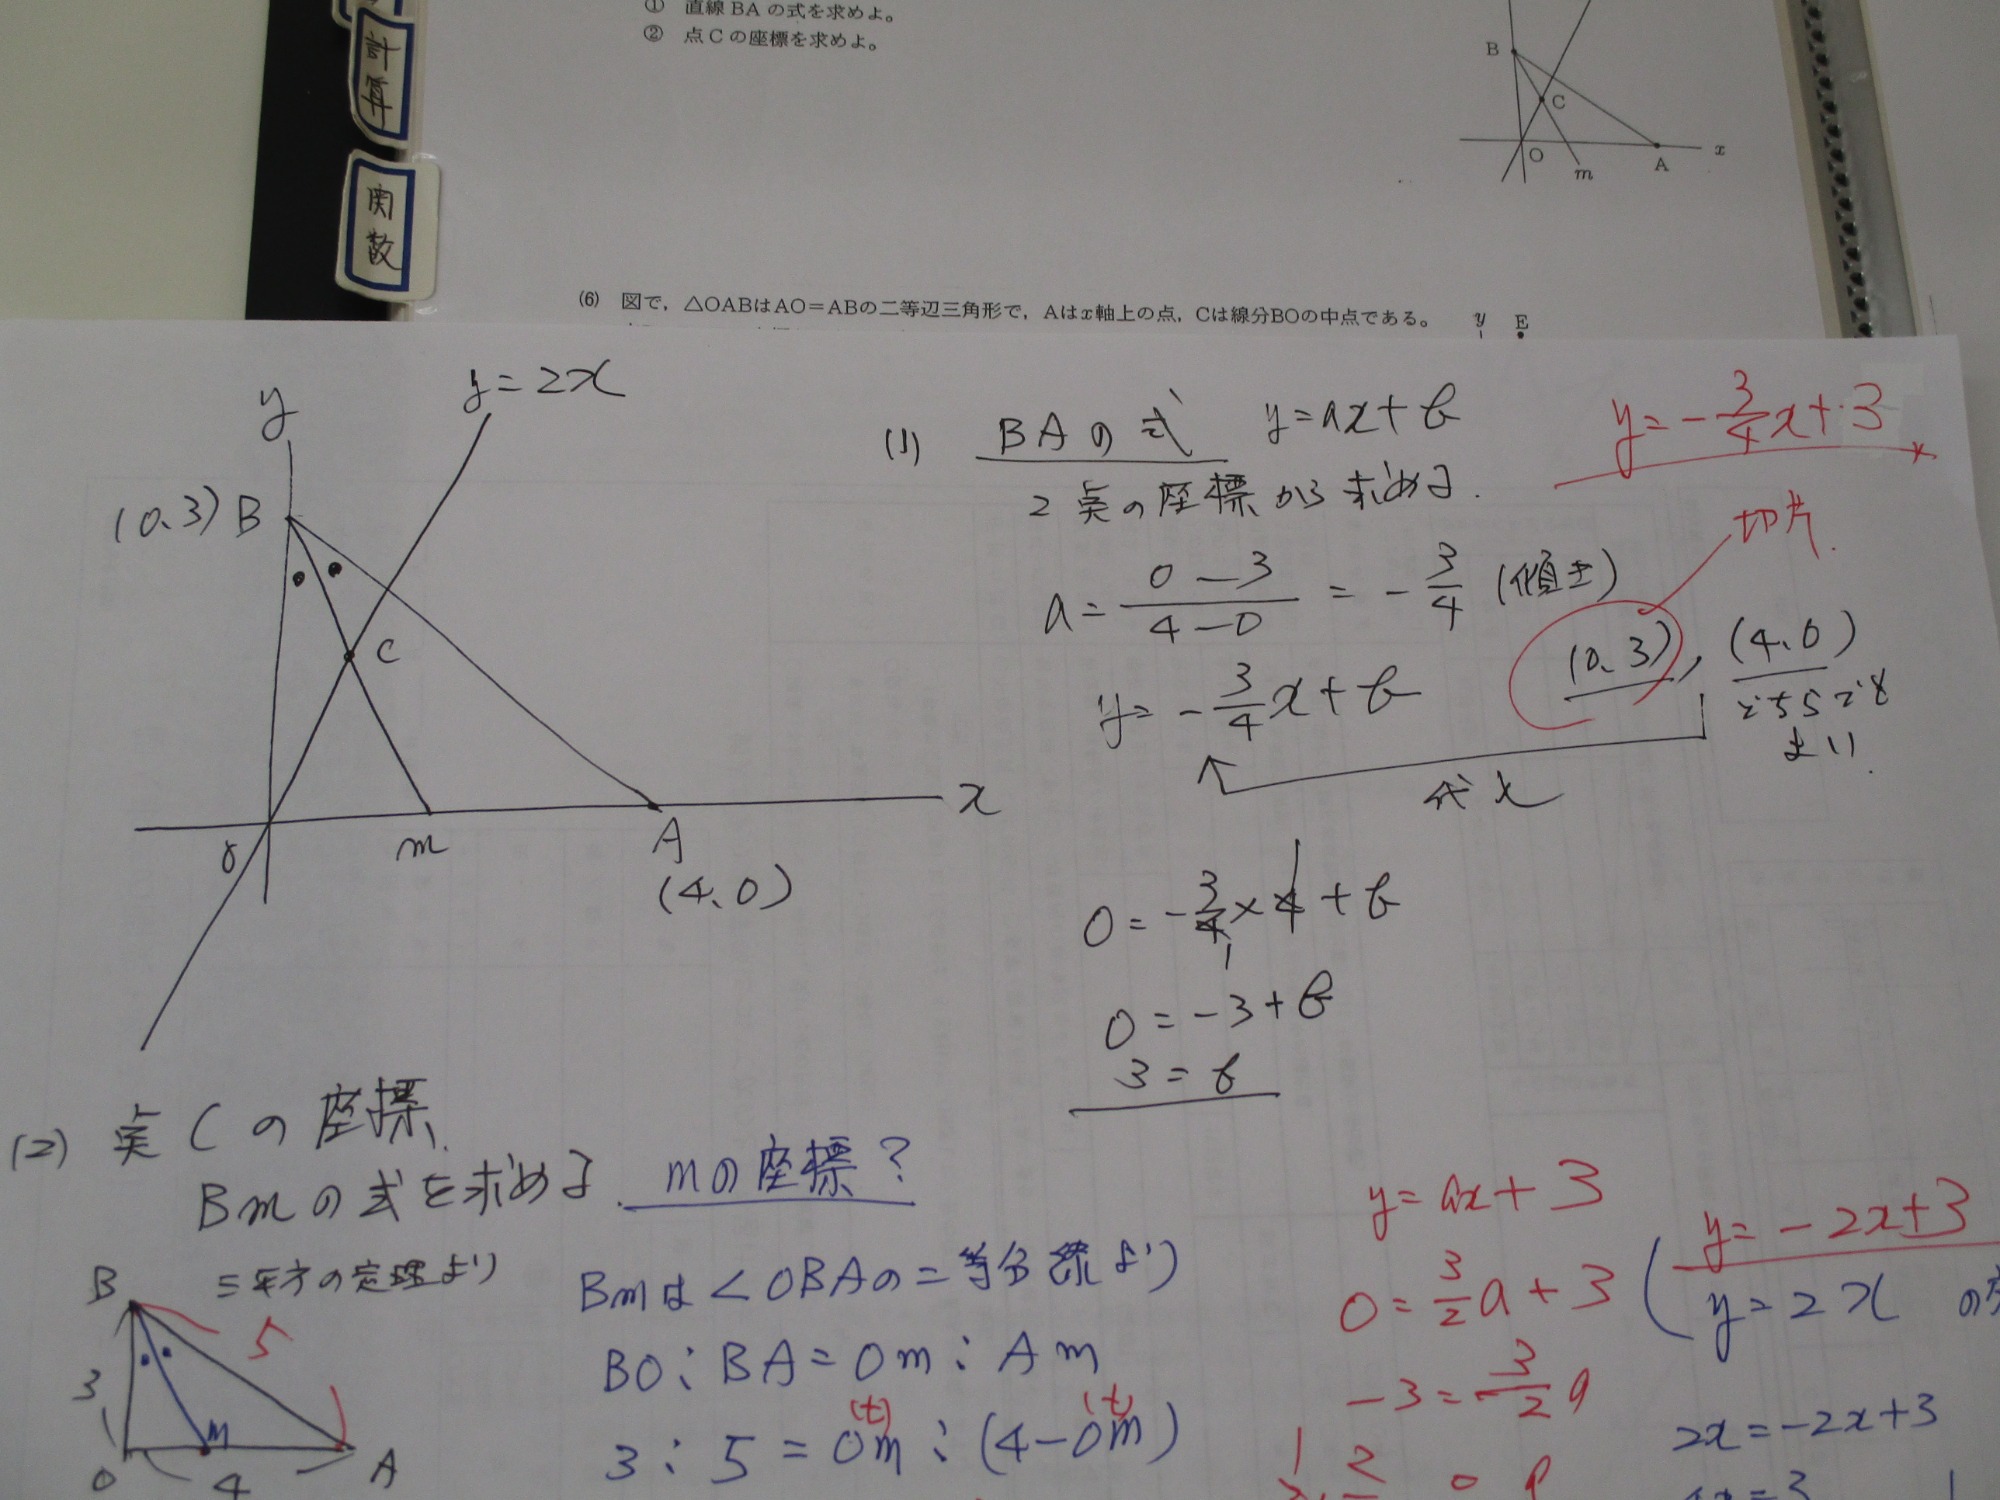 計算
関数
① 直線BAの式を求めよ。
② 点Cの座標を求めよ。
B
C
O
m
A
x
(6) 図で，△OABはAO＝ABの二等辺三角形で，Aはx軸上の点，Cは線分BOの中点である。
y E
y
y=2x
(0、3) B
C
O
m
A
(4、0)
x
(1) BAの式 y=ax+b
2点の座標から求める.
y=-3/4x+3
切片.
a=(0-3)/(4-0)=-3/4 (傾き)
(0、3), (4、0)
どちらでも
よい.
y=-3/4x+b
代入
0=-3/4×4+b
1
1
0=-3+b
3=b
(2) 点Cの座標、
Bmの式を求める. mの座標?
三平方の定理より
B
5
3
O
m
4
A
Bmは∠OBAの二等分線より
BO:BA=Om:Am
(t) (t)
3:5=Om:(4-Om)
y=ax+3
0=3/2a+3
-3=-3/2a
y=-2x+3
y=2x の
2x=-2x+3